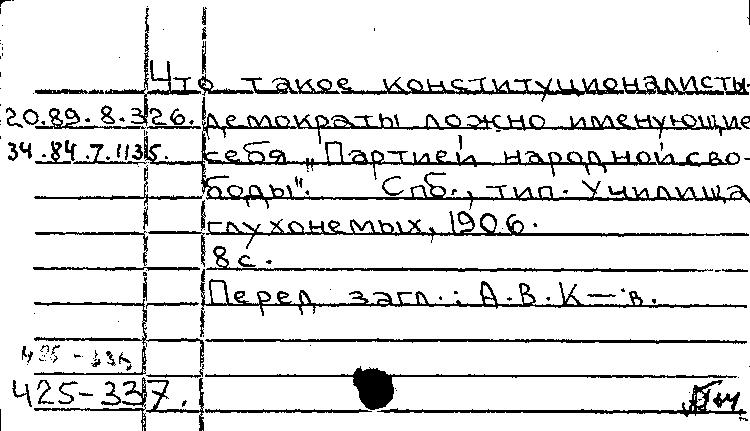 Что такое конституционалисты-
20.89.8.326. демократы ложно именующие
34.84.7.1135. себя „Партией народной сво-
боды". Спб., тип. Училища
глухонемых, 1906.
8 с.
Перед загл.: А.В.К—в.
425-337.